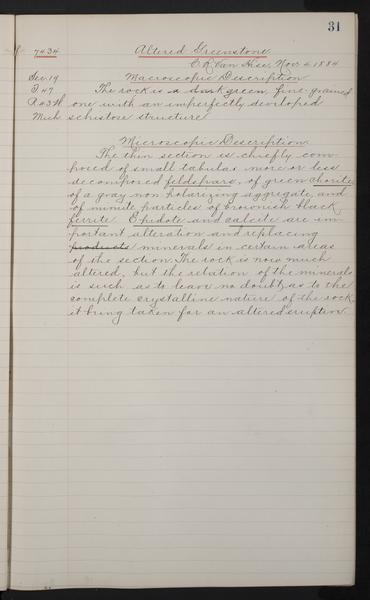 31
7434 Altered Greenstone
C. R. Van Hise, Nov. 6, 1884
Sec. 19 Macroscopic Description
T. 47 The rock is a dark green, fine grained
R. 43 W. one with an imperfectly developed
Mich schistose structure
Microscopic Description.
The thin section is chiefly com-
posed of small tabular more or less
decomposed feldspars, of green chorites
of a gray non polarizing aggregate, and
of minute particles of brownish black
ferrite. Epidote and calcite are im-
portant alteration and replacing
products minerals in certain areas
of the section. The rock is now much
altered, but the relation of the minerals
is such as to leave no doubt, as to the
complete crystalline nature of the rock,
it being taken for an altered eruption